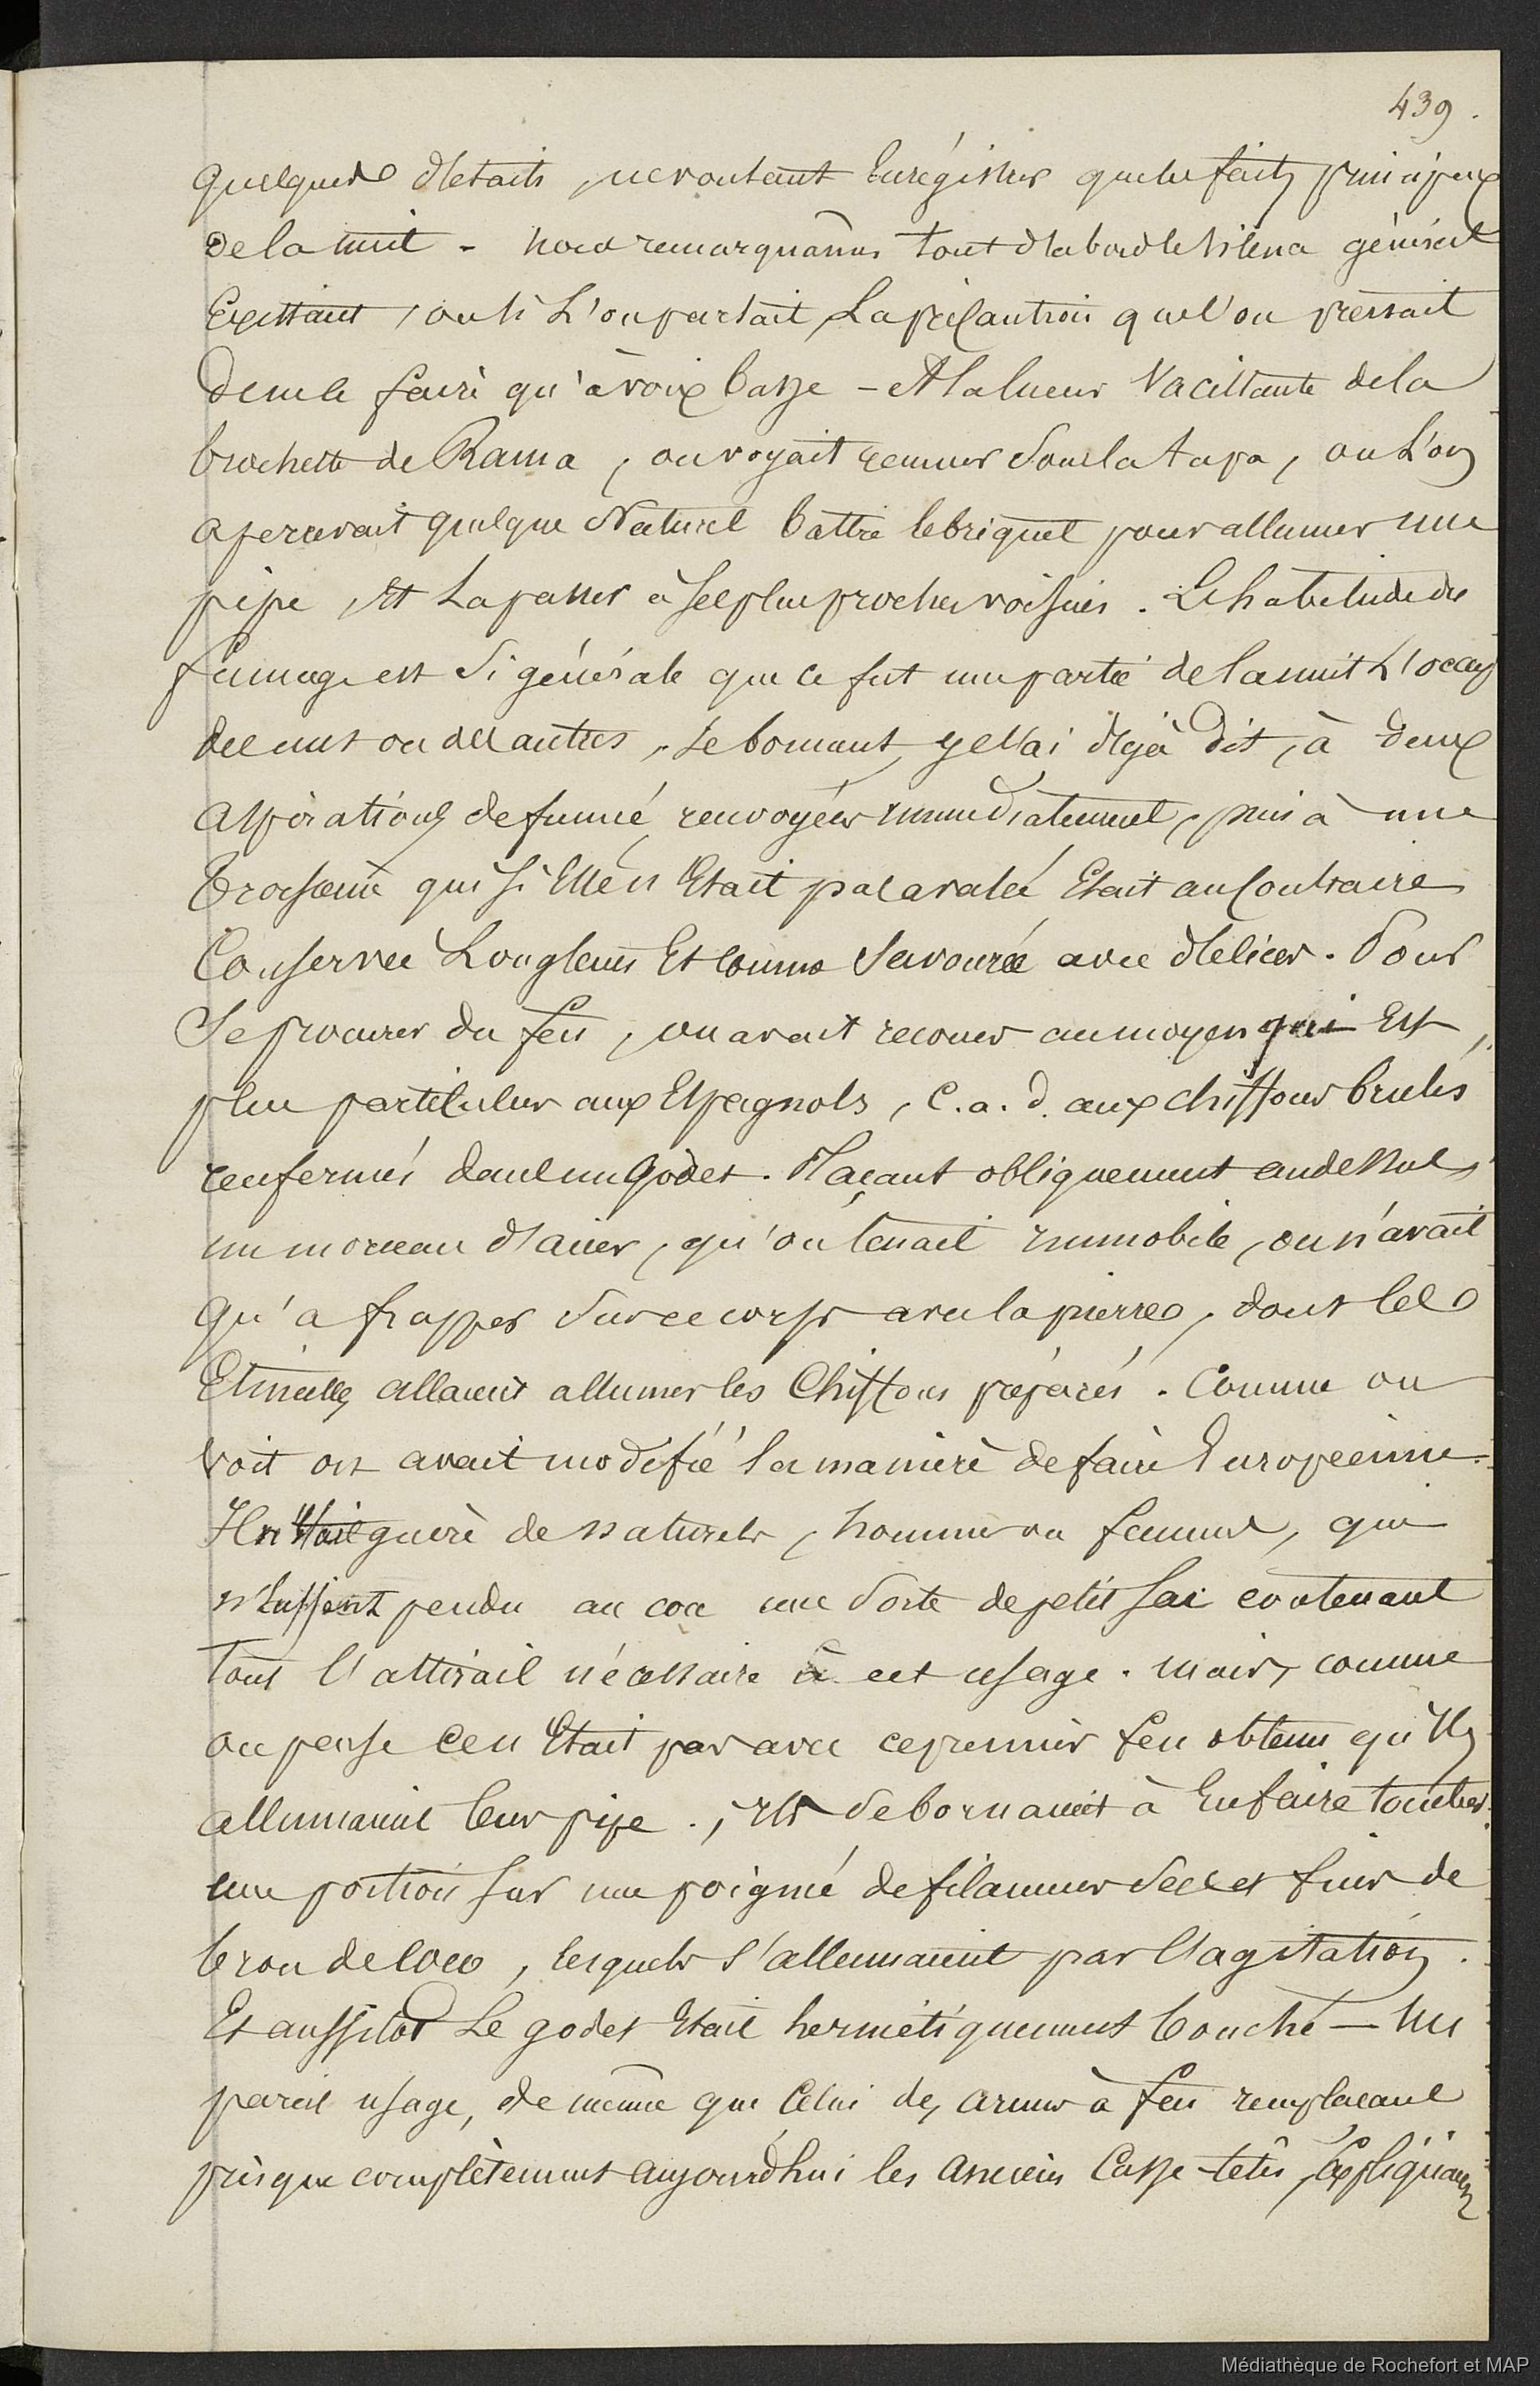 439.
quelques détails, ne voulant Enrégistrer que les faits principaux
de la nuit - nous remarquâmes tout d'abord le silence général
Existant, ou si L'on parlait, La précaution que l'on prenait
de ne le faire qu'à voix basse - A la lueur Vacillante de la
brochette de Rama, on voyait remuer sous la tapa, ou L'on
apercevait quelque Naturel battre le briquet pour allumer une
pipe, et La passer à ses plus proches voisins. L'habitude du
fumage est si générale que ce fut une partie de la nuit L'occup
des uns ou des autres, se bornant, je l'ai déjà dit, à deux
aspirations de fumée, renvoyées immédiatement, puis à une
troisième qui si Elle n'Etait pas avalée Etait au Contraire
Conservée Longtems Et comme savourée avec délices. Pour
Se procurer du feu, on avait recours au moyen qui Est,
plus particulier aux Espagnols, C.a.d. aux chiffons brulés
renfermés dans un Godet. Plaçant obliquement au dessus
un morceau d'acier, qu'on tenait immobile, on n'avait
qu'a frapper sur ce corps avec la pierre, dont les
Etincelles allaient allumer les Chiffons préparés. Comme on
voit on avait modifié la manière de faire Européenne.
Il n'Etait guère de naturels, hommes ou femmes, qui
n'Eussent pendu au cou une sorte de petit sac contenant
tout l'attirail nécessaire à cet usage. mais, comme
on pense ce n'Etait pas avec ce premier feu obtenu qu'ils
allumaient leur pipe., ils se bornaient à En faire tomber
une portion sur une poignée de filamens secs et fins de
brou de coco, lesquels s'allumaient par l'agitation.
Et aussitot Le godet Etait hermétiquement bouché — Un
pareil usage, de même que Celui des armes à feu remplaçant
presque complètement aujourd'hui les anciens Casse-têtes, Expliquait